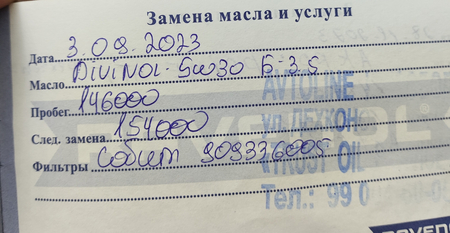 Замена масла и услуги
Дата 3.09.2023
Масло DIVINOL 5W30 Б-3.5
Пробег 146000
След. замена 154000
Фильтры 909336005
AVTOLINE
OIL
Тел.: 99 0